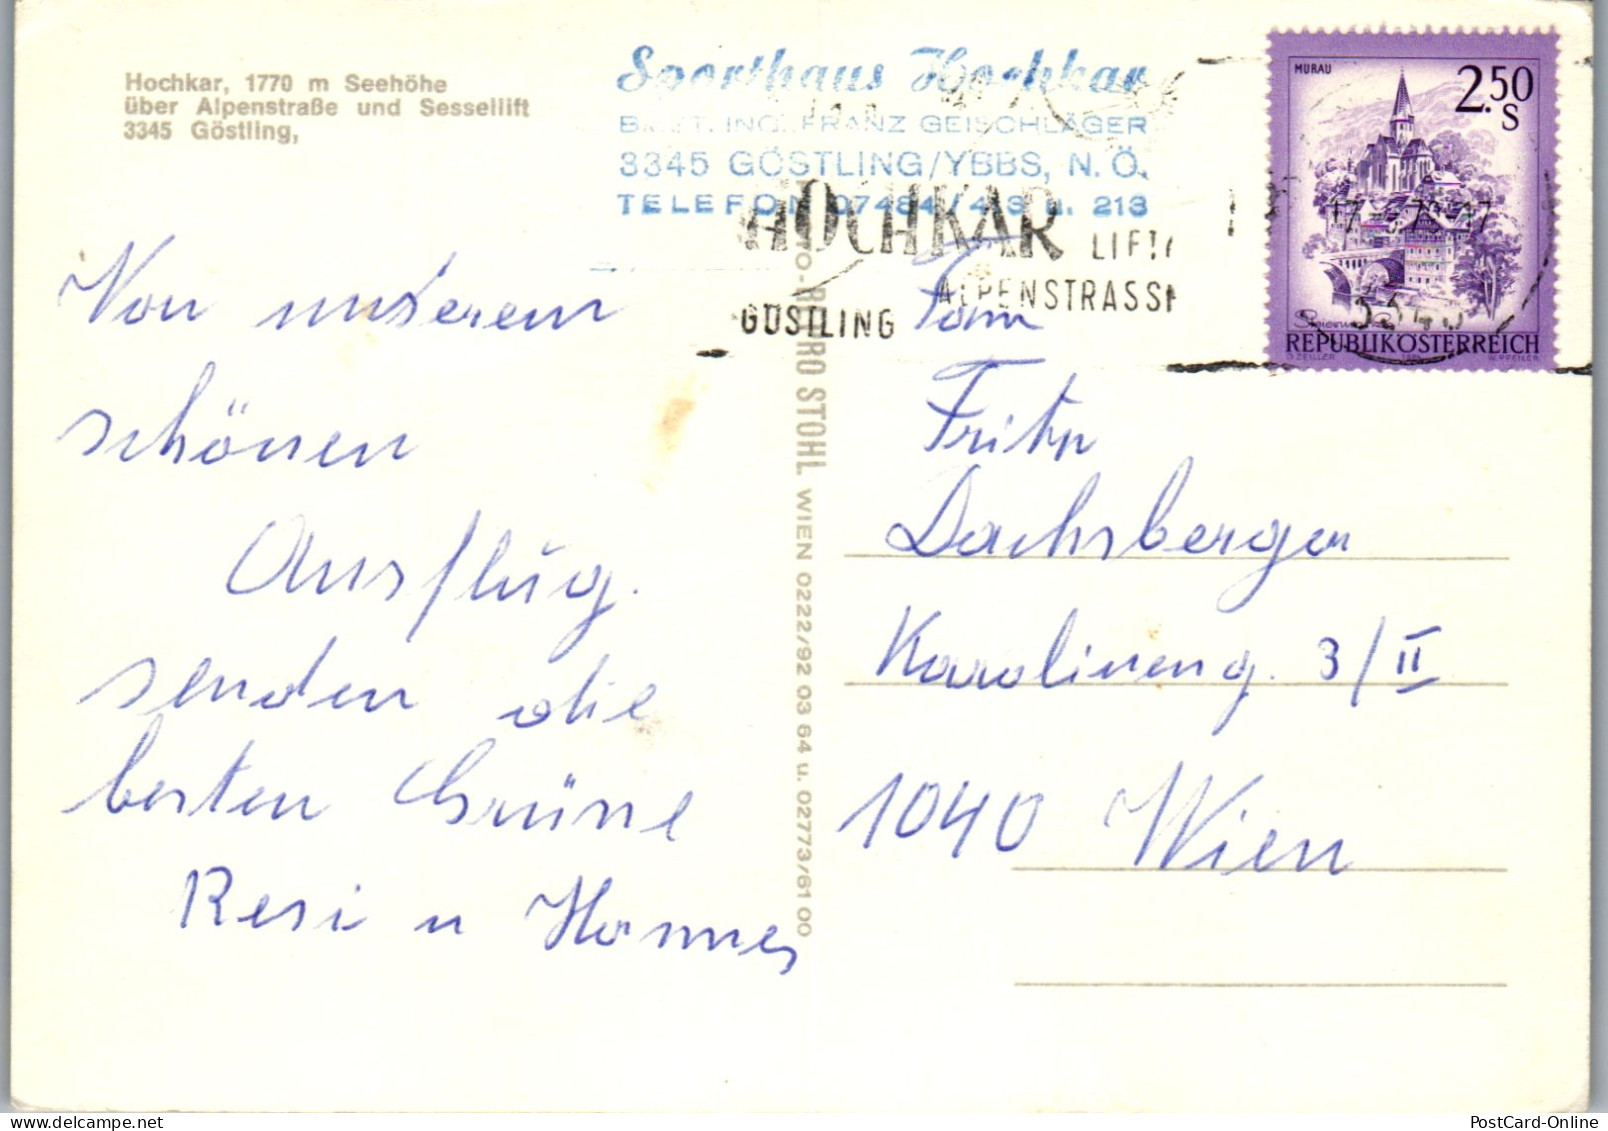 Hochkar, 1770 m Seehöhe
über Alpenstraße und Sessellift
3345 Göstling,
Sporthaus Hochkar
ING. FRANZ GEISCHLÄGER
3345 GÖSTLING/YBBS, N. Ö.
TELEFON 07484/ u. 213
HOCHKAR
LIFT
ALPENSTRASSE
GÖSTLING
MURAU
2.50
S
REPUBLIK ÖSTERREICH
Von unserem
schönen
Ausflug.
senden die
besten Grüsse
Resi u Hannes
STOHL WIEN 0222/92 03 64 u. 02773/61 00
Fam
Fritz
Dachsberger
Karolineng. 3/II
1040 Wien
PostCard-Online